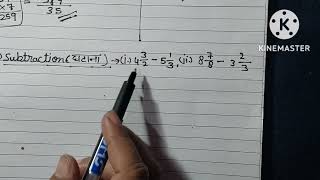 × 7
259
35
Subtraction (घटाना) → (i) 4 3/2 − 5 1/3, (ii) 8 7/8 − 3 2/3
KINEMASTER